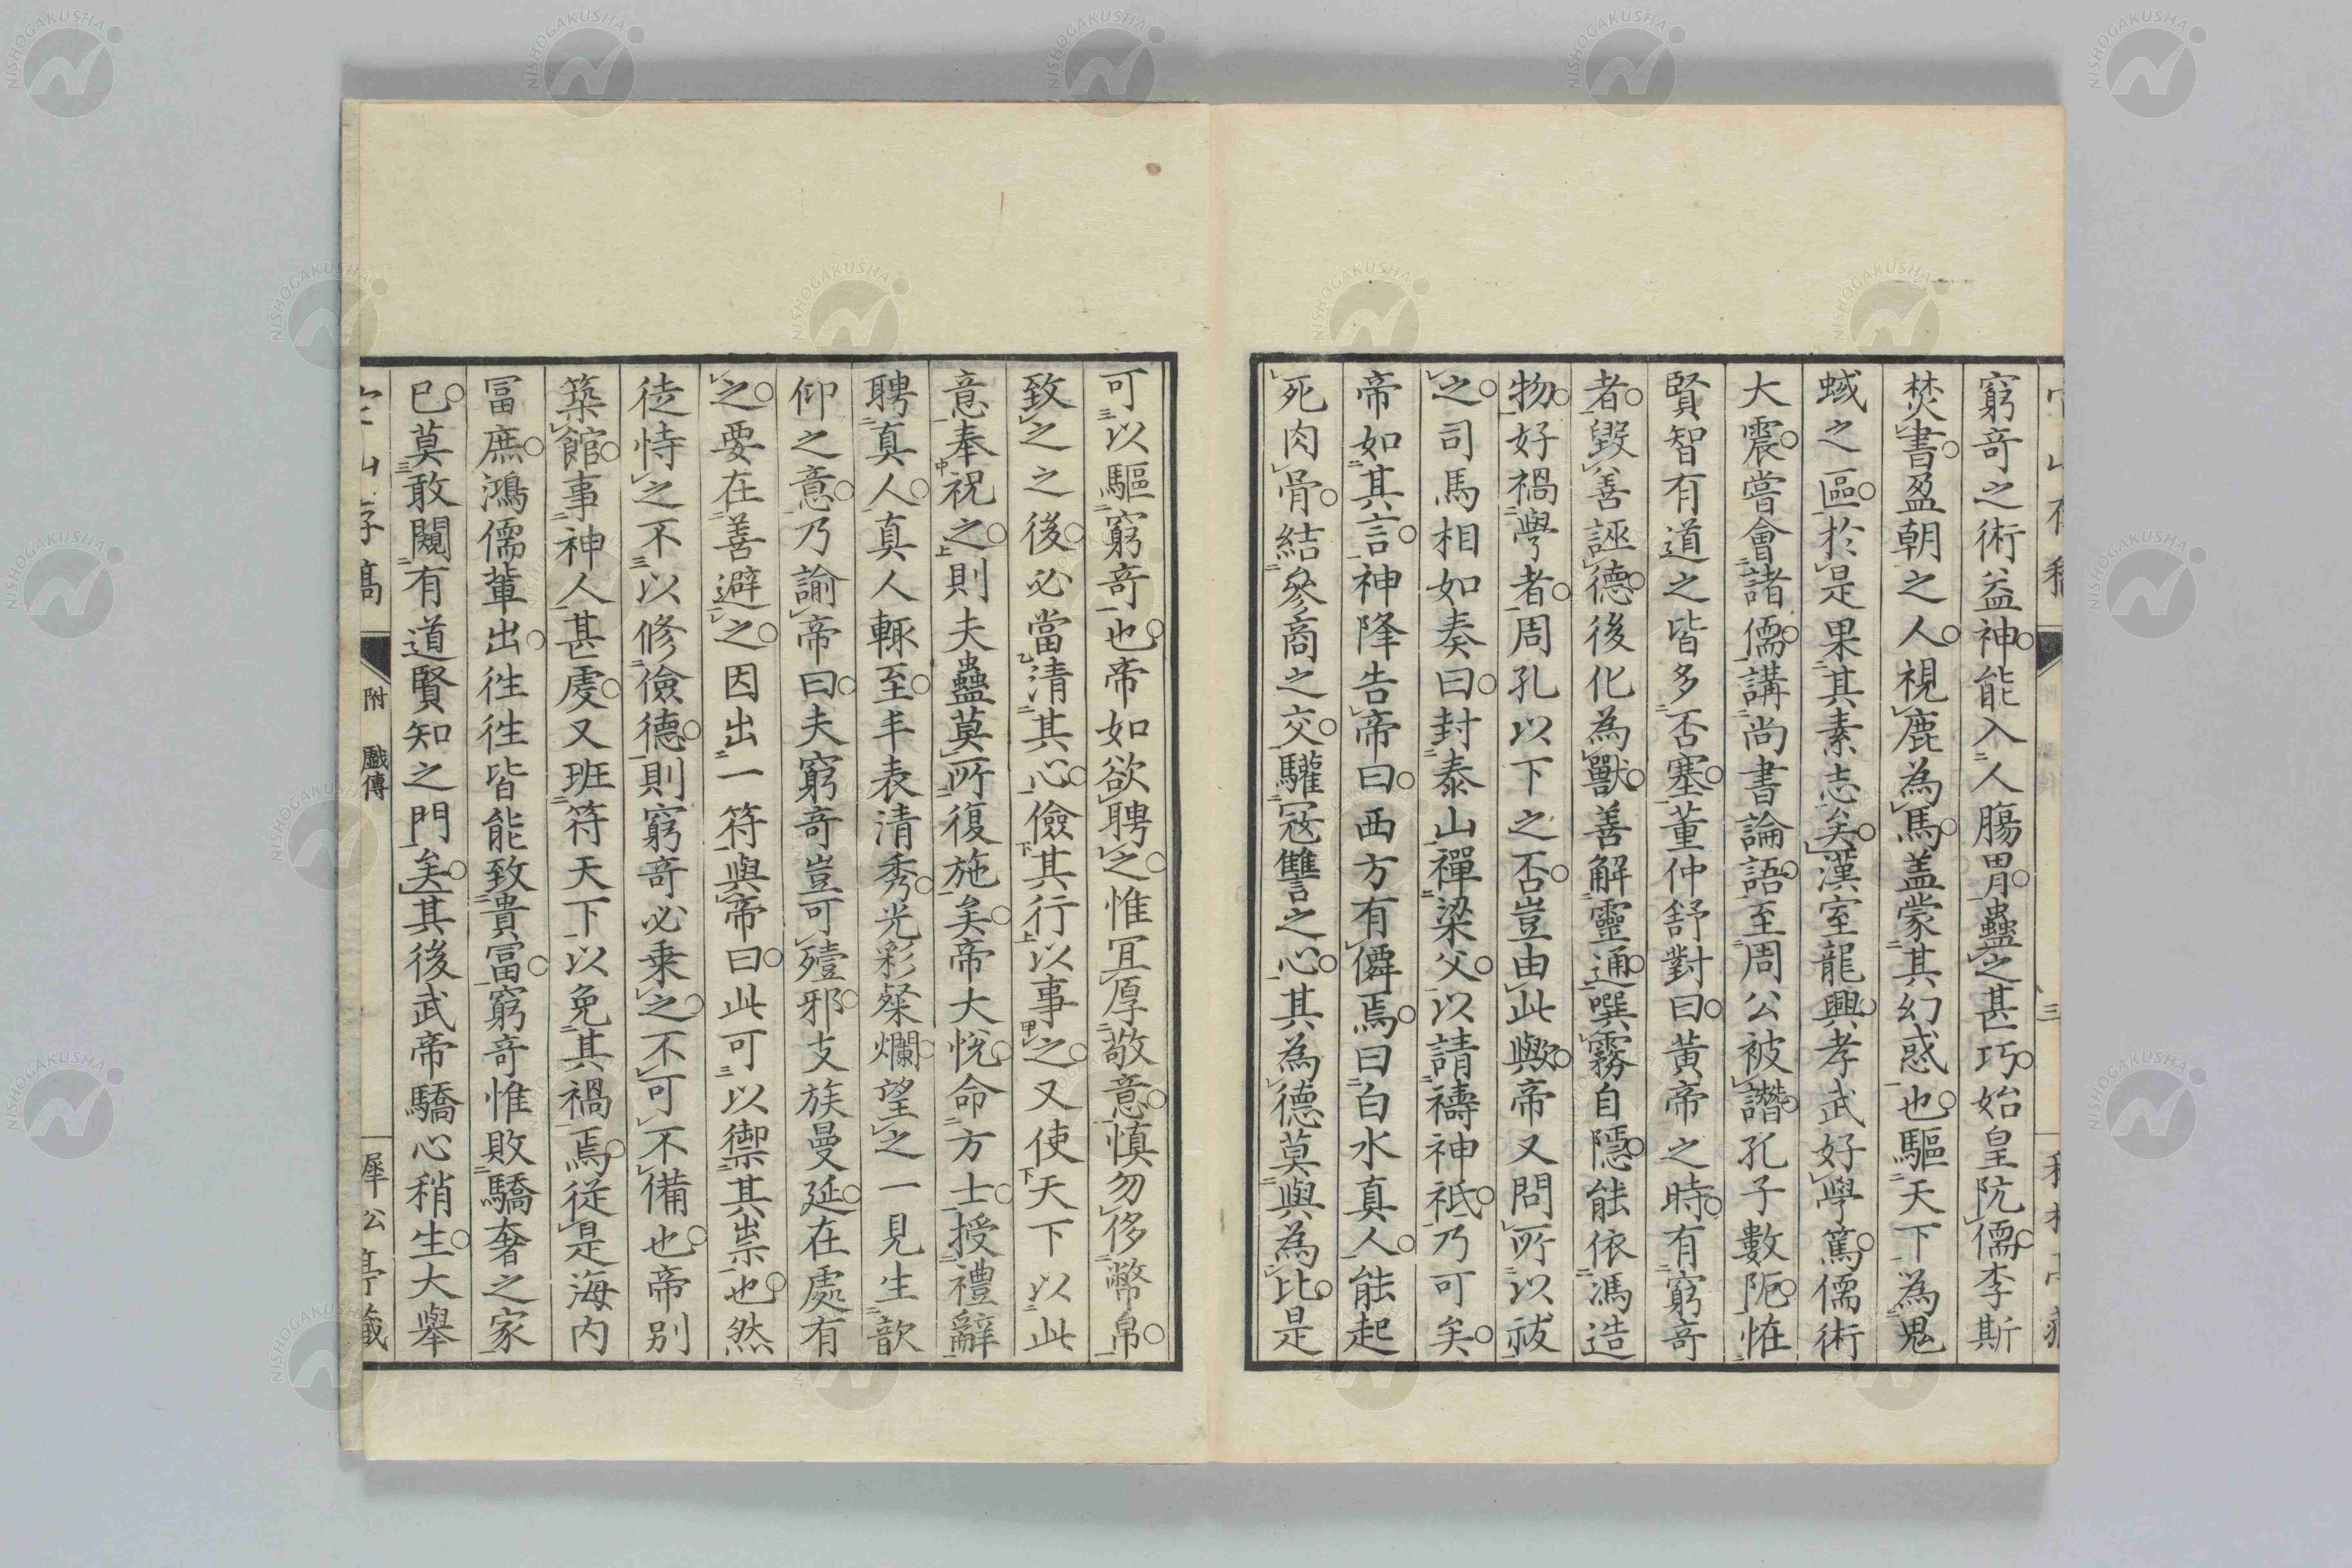 窮奇之術益神能入人膓胃蠱之甚巧始皇阬儒李斯
焚書盈朝之人視鹿為馬盖蒙其幻惑也驅天下為鬼
蜮之區於是果其素志矣漢室龍興孝武好學篤儒術
大震嘗會諸儒講尚書論語至周公被譖孔子數阨恠
賢智有道之皆多否塞董仲舒對曰黃帝之時有窮奇
者毀善誣德後化為獸善解靈通噀霧自隱能依馮造
物好禍學者周孔以下之否豈由此歟帝又問所以祓
之司馬相如奏曰封泰山禪梁父以請禱神祇乃可矣
帝如其言神降告帝曰西方有僊焉曰白水真人能起
死肉骨結參商之交驩冦讐之心其為德莫與為比是
可以驅窮奇也帝如欲聘之惟冝厚敬意慎勿侈幣帛
致之之後必當清其心儉其行以事之又使天下以此
意奉祝之則夫蠱莫所復施矣帝大悅命方士授禮辭
聘真人真人輙至丰表清秀光彩粲爛望之一見生歆
仰之意乃諭帝曰夫窮奇豈可殪邪支族曼延在處有
之要在善避之因出一符與帝曰此可以禦其祟也然
徒恃之不以修儉德則窮奇必乗之不可不備也帝别
築館事神人甚虔又班符天下以免其禍焉從是海内
冨庶鴻儒輩出徃徃皆能致貴冨窮奇惟敗驕奢之家
已莫敢闚有道賢知之門矣其後武帝驕心稍生大擧
附 戲傳
犀公亭藏
三
NISHOGAKUSHA